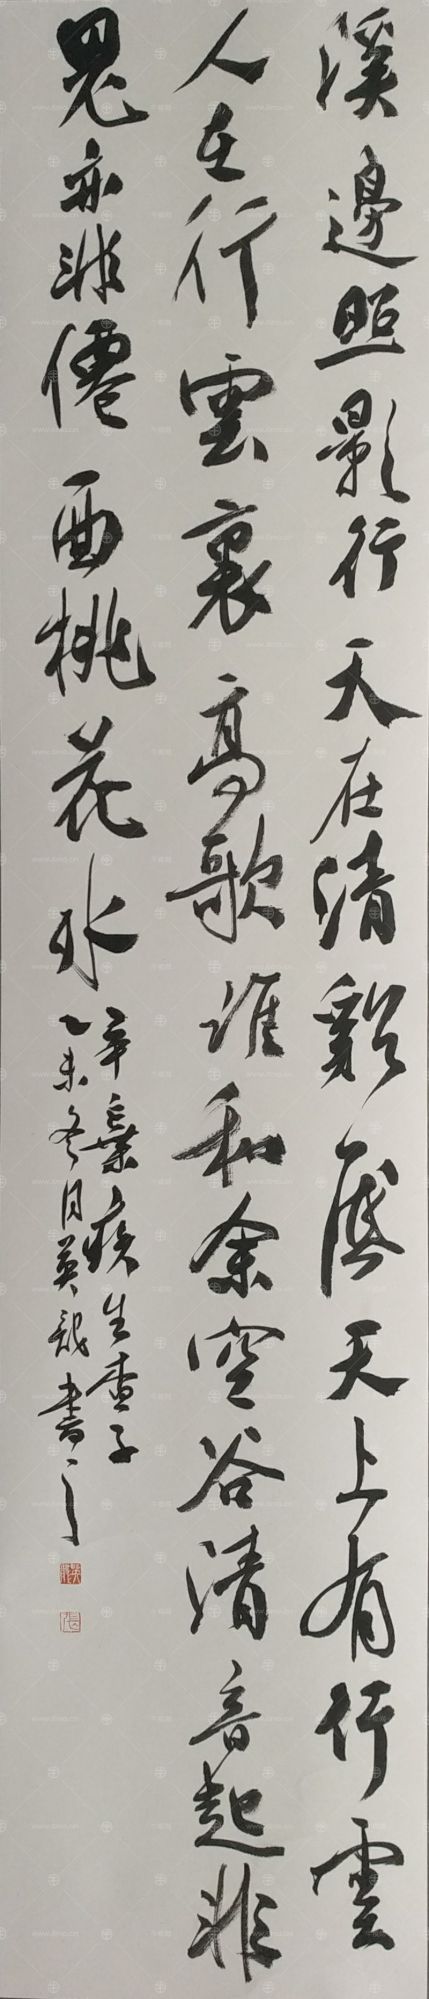 溪邊照影行天在清谿底天上有行雲
人在行雲裏高歌誰和余空谷清音起非
鬼亦非僊一曲桃花水
辛棄疾生查子
乙未冬月英書之
張